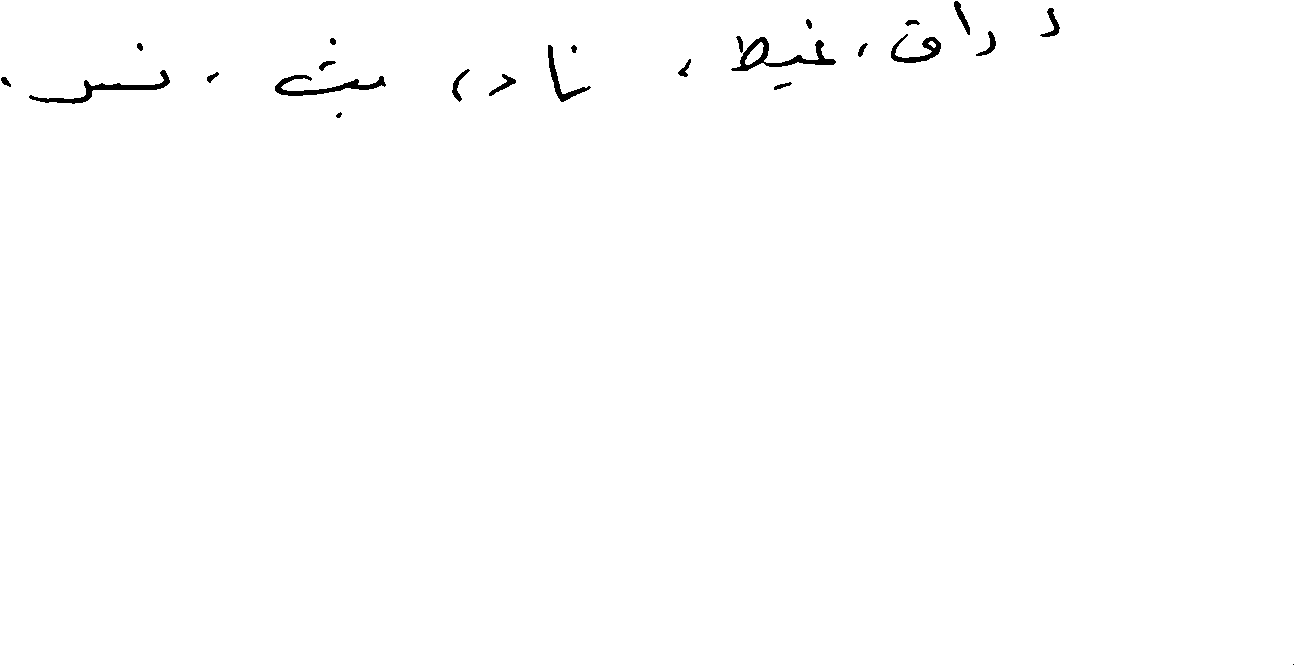 دراق، غيط، ناد، بث، نس.